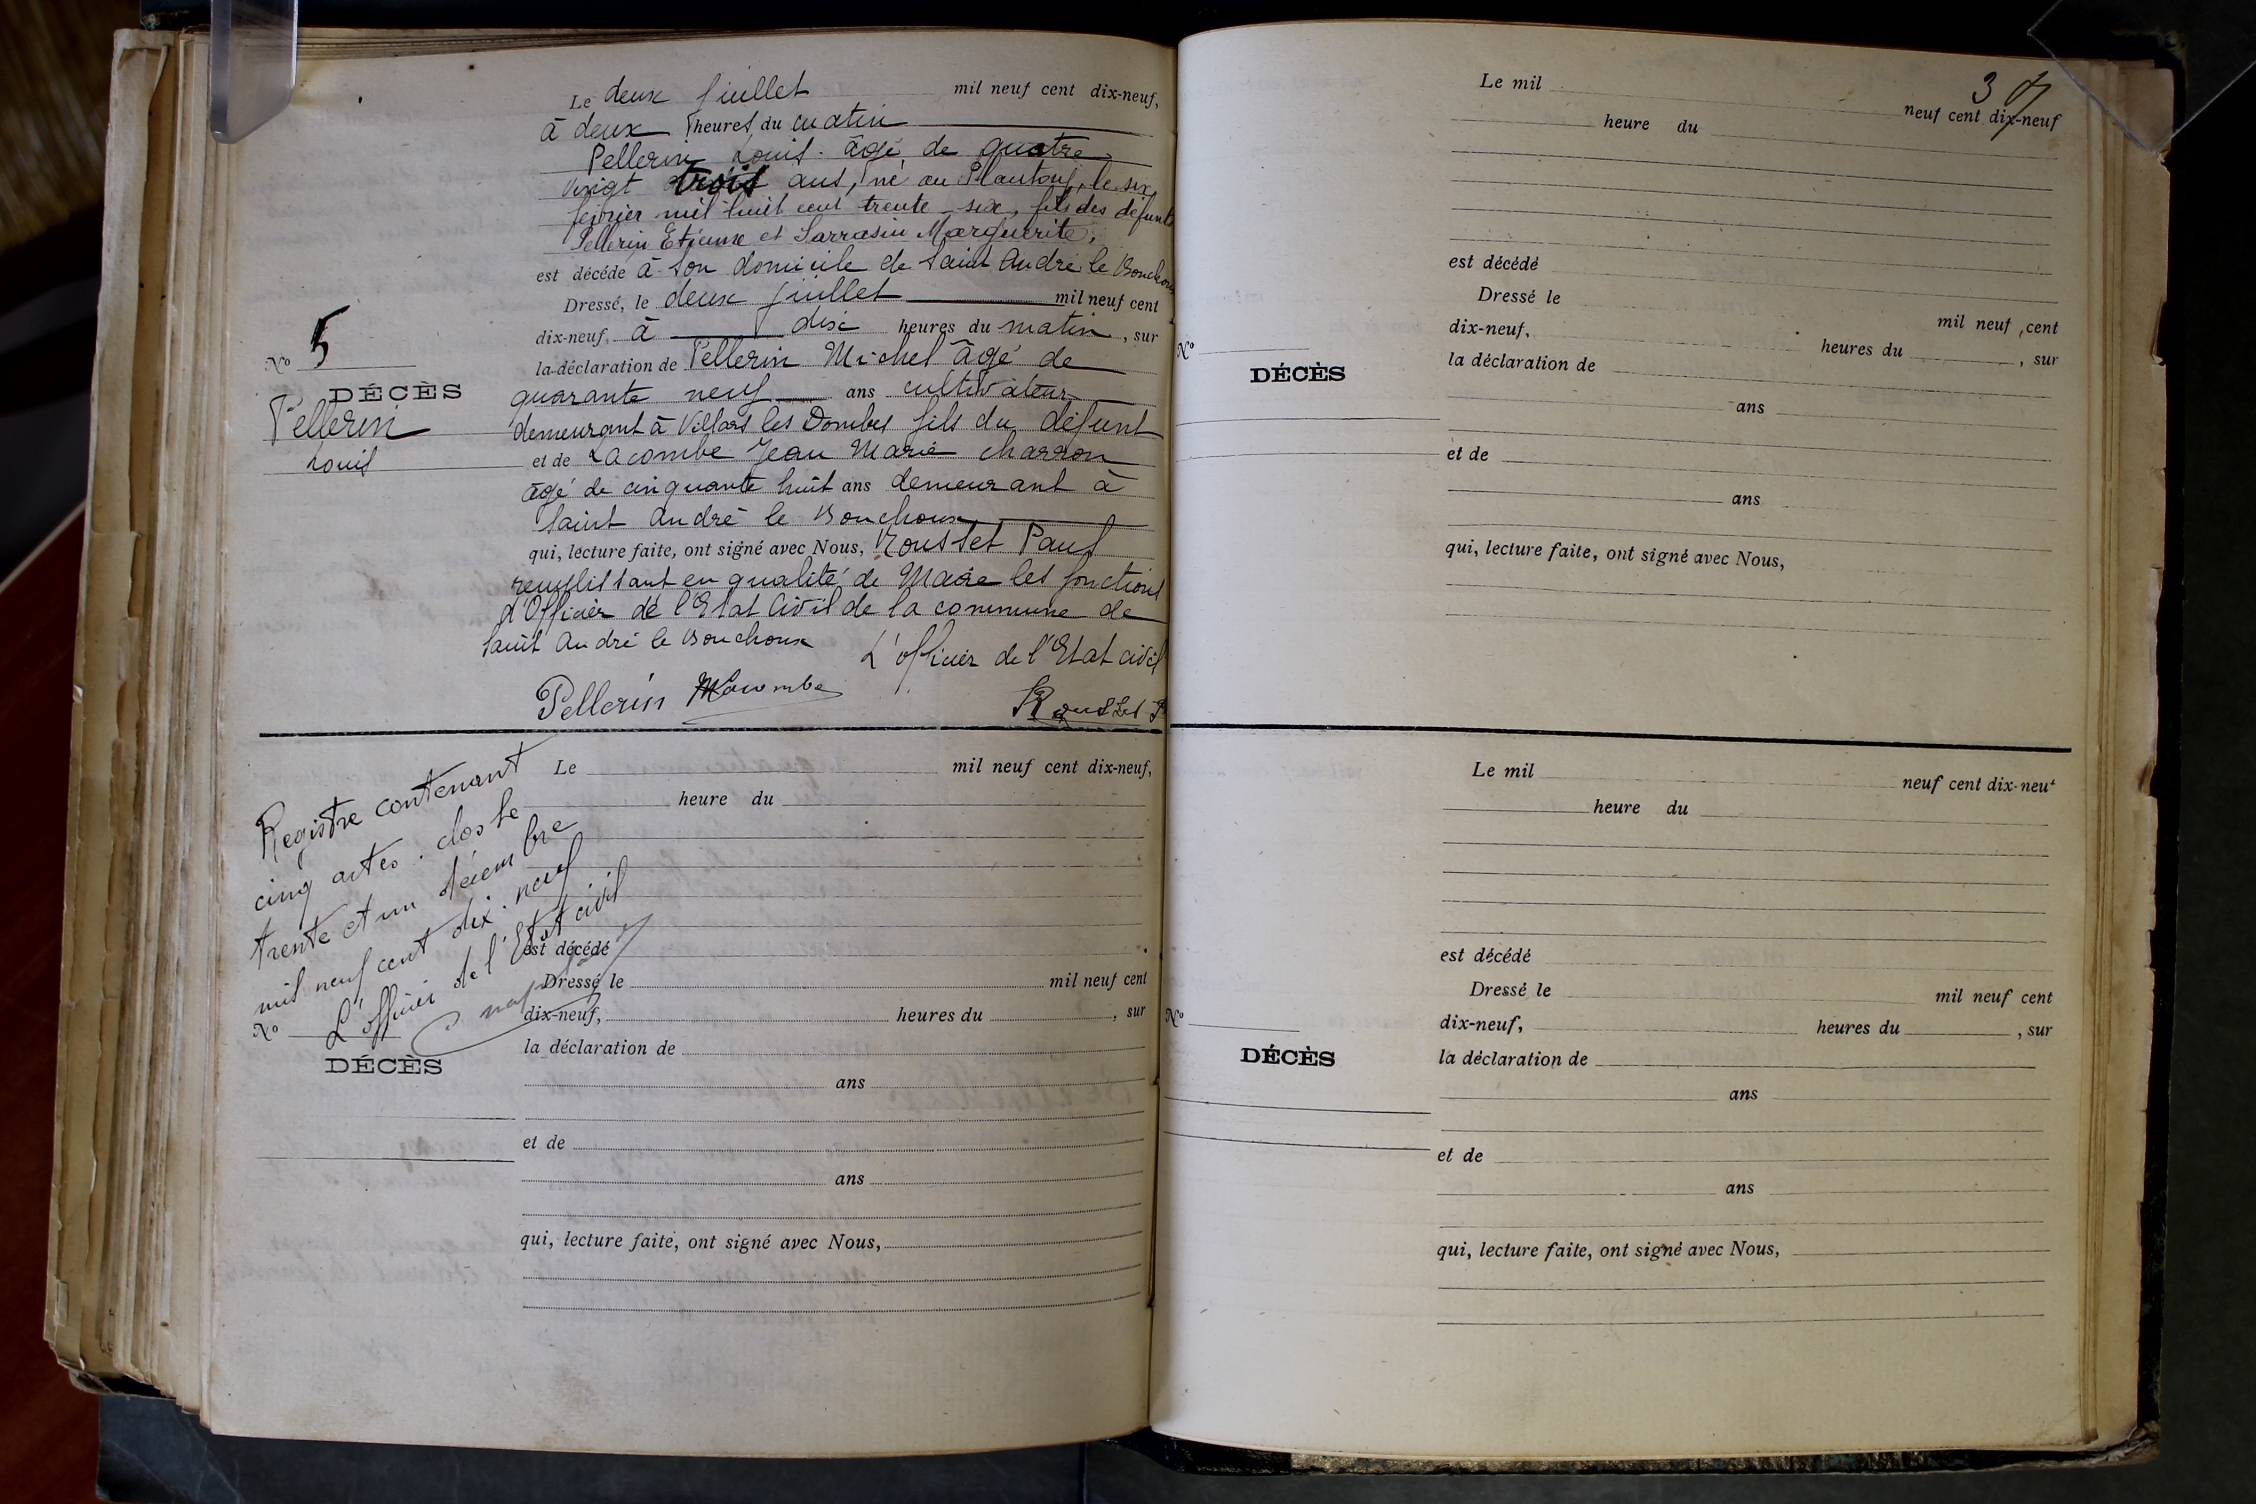 Le deux juillet mil neuf cent dix-neuf,
à deux heures du matin
Pellerin Louis âgé de quatre
vingt trois ans, né au Plantay, le six
février mil huit cent trente six, fils des défunts
Pellerin Etienne et Sarrasin Marguerite,
est décédé à son domicile de Saint André le Bouchoux
Dressé, le deux juillet mil neuf cent
dix-neuf, à dix heures du matin, sur
la déclaration de Pellerin Michel âgé de
quarante neuf ans cultivateur
demeurant à Villars les Dombes fils du défunt
et de Lacombe Jean Marie charron
âgé de cinquante huit ans demeurant à
Saint André le Bouchoux
qui, lecture faite, ont signé avec Nous, Rousset Paul
remplissant en qualité de Maire les fonctions
d'Officier de l'Etat Civil de la commune de
Saint André le Bouchoux L'officier de l'Etat civil
Pellerin Lacombe Rousset P
No 5
DÉCÈS
Pellerin
Louis
Registre contenant
cinq actes. clos le
trente et un décembre
mil neuf cent dix-neuf
L'officier de l'Etat civil
Le mil neuf cent dix-neuf,
heure du
est décédé
Dressé le mil neuf cent
dix-neuf, heures du , sur
No
DÉCÈS
la déclaration de
ans
et de
ans
qui, lecture faite, ont signé avec Nous,
37
Le mil neuf cent dix-neuf
heure du
est décédé
Dressé le mil neuf cent
dix-neuf, heures du , sur
No
DÉCÈS
la déclaration de
ans
et de
ans
qui, lecture faite, ont signé avec Nous,
Le mil neuf cent dix-neuf
heure du
est décédé
Dressé le mil neuf cent
dix-neuf, heures du , sur
No
DÉCÈS
la déclaration de
ans
et de
ans
qui, lecture faite, ont signé avec Nous,